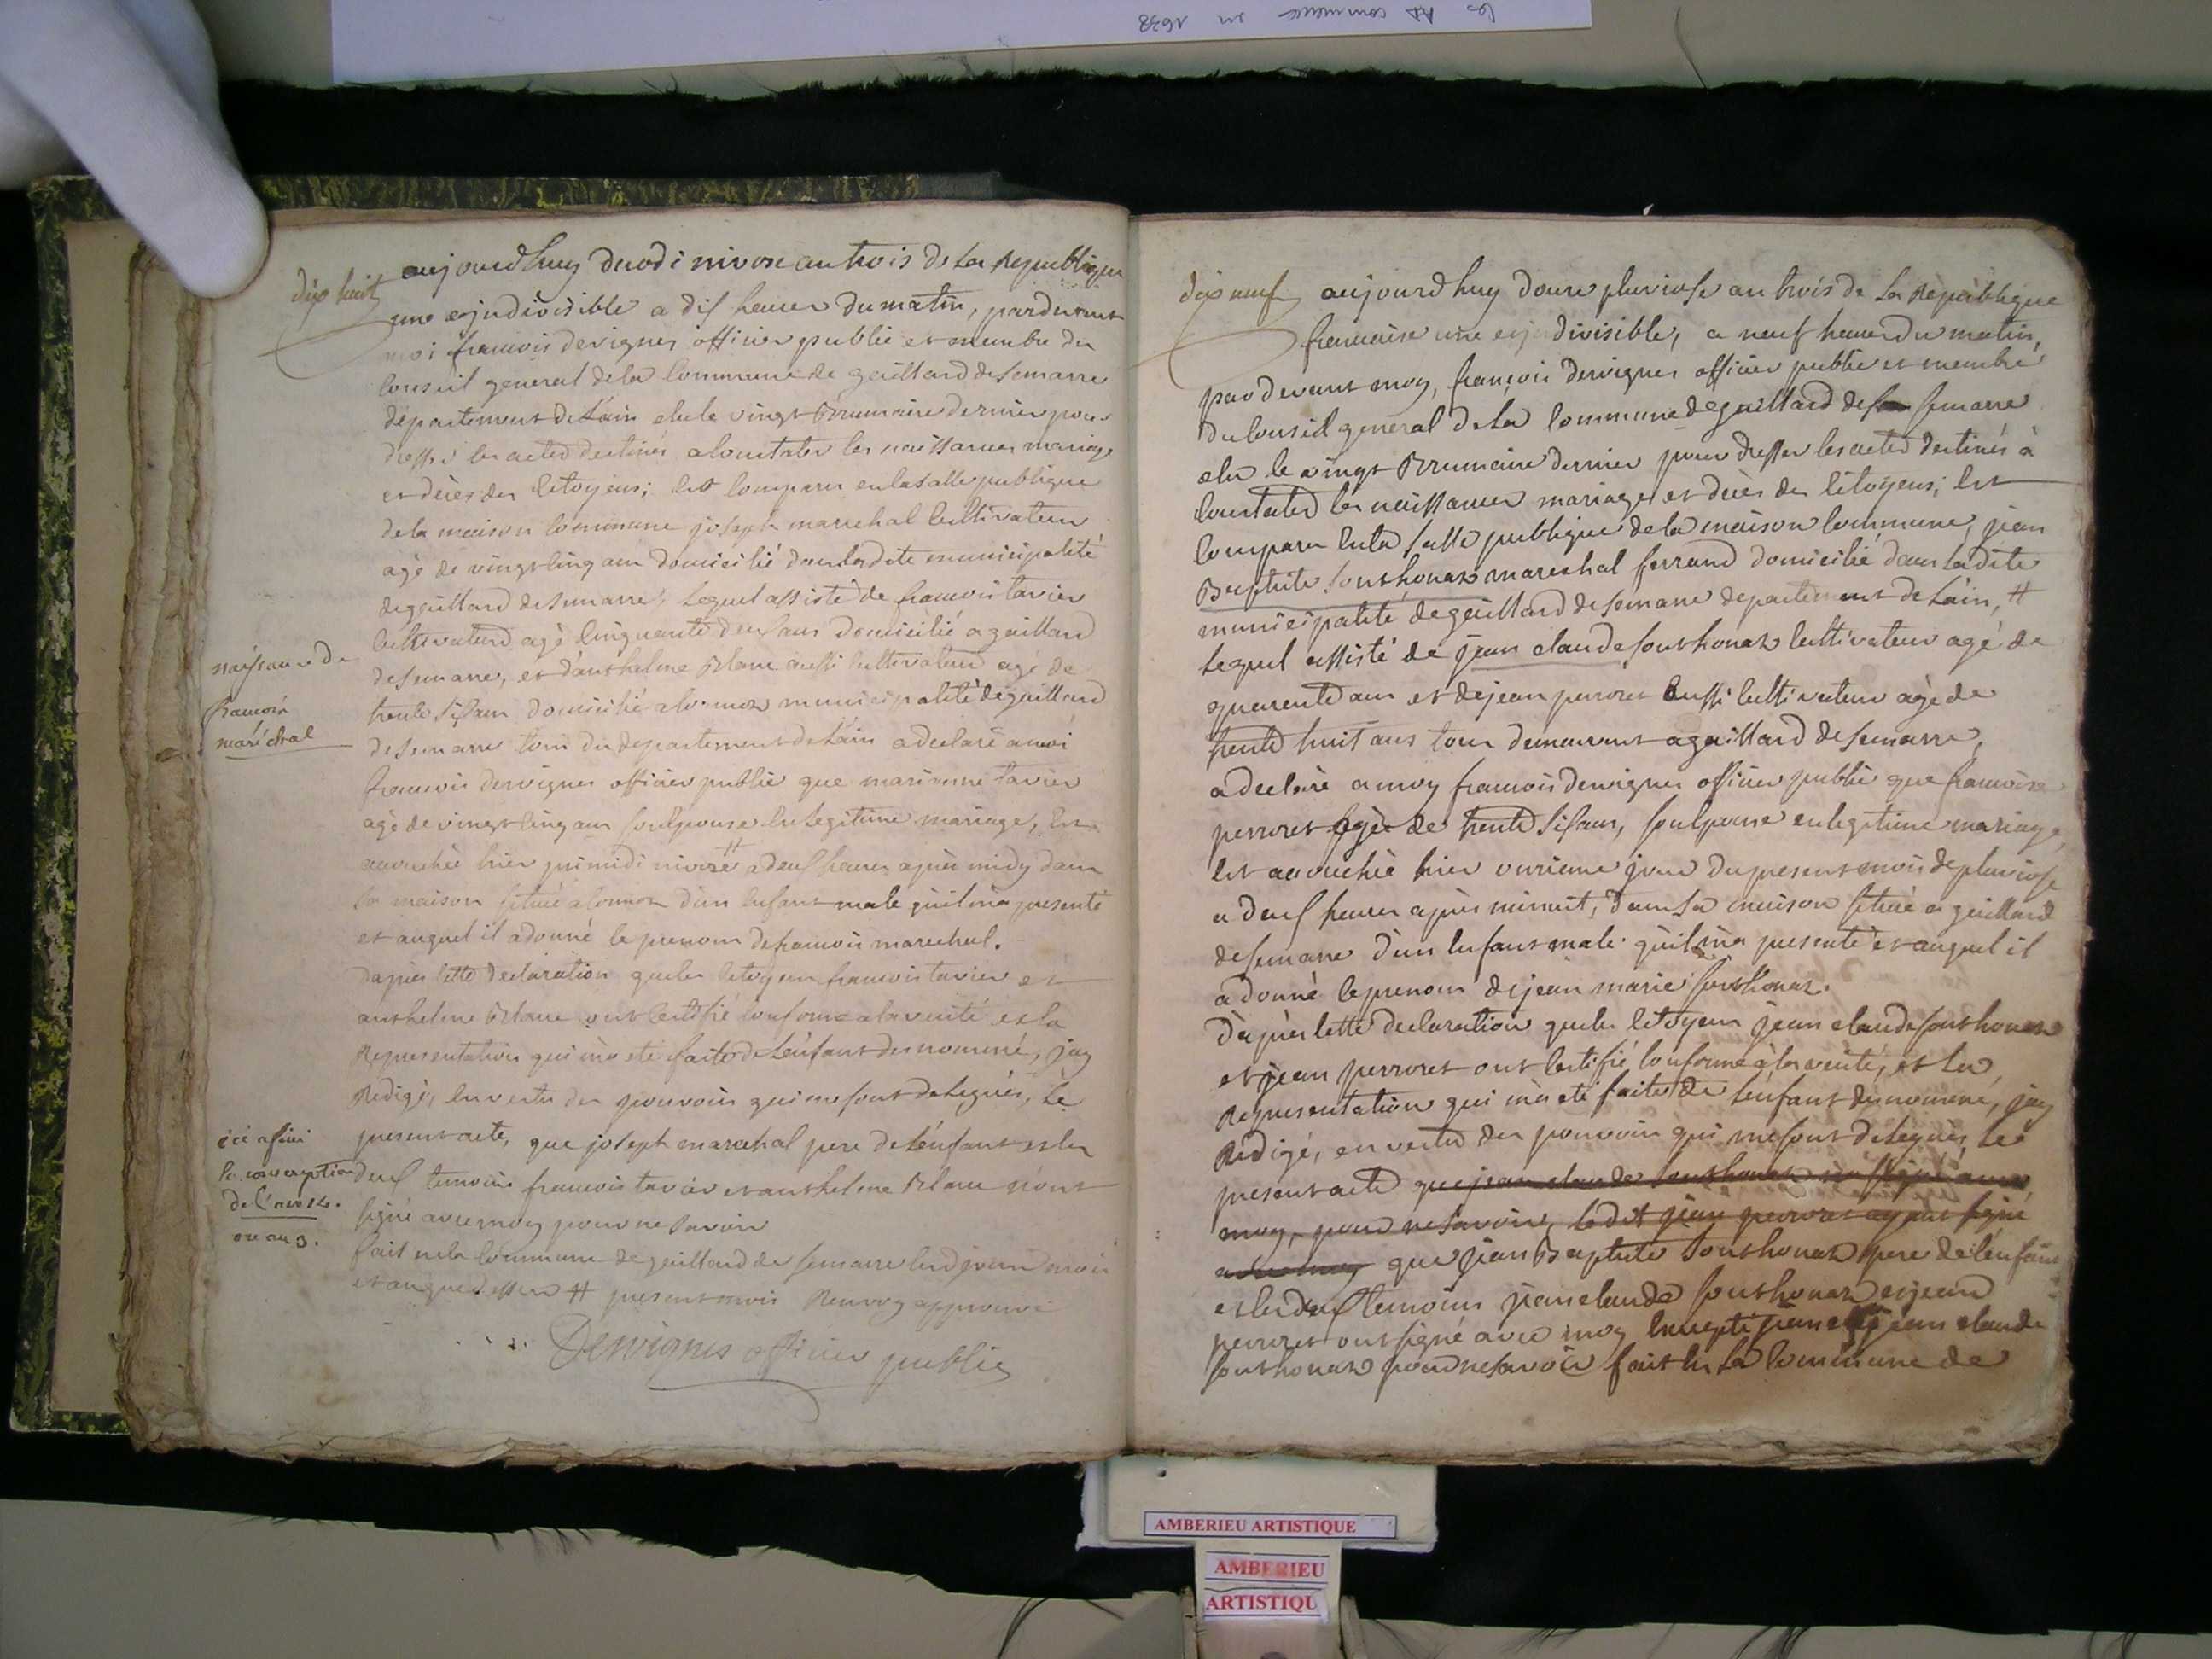 les AD commence en 1638
dix huit
aujourdhuy duodi nivose an trois de la Republique
une et jndivisible a dix heures du matin, pardevant
moi francois dervignes officier public et membre du
Conseil general de la Commune de gaillard de semarre
département de L'ain elu le vingt Brumaire dernier pour
dresser les actes destinés a Constater les naissances mariage
et décès des Citoyens; Est Comparu en la salle publique
de la maison Commune joseph marechal Cultivateur
agé de vingt Cinq ans domicilié dans ladite municipalité
de gaillard de semarre, Lequel assisté de francois tavier
Cultivateur agé Cinquante deux ans domicilié a gaillard
de semarre, et d'anthelme Blanc aussi Cultivateur agé de
trente six ans domicilié a municipalité de gaillard
de semarre tous du département de L'ain a declaré a moi
francois dervignes officier public que marianne tavier
agé de vingt Cinq ans son Epouse En Legitime mariage, Est
accouchée hier primidi nivose # a deux heures après midy dans
sa maison située a d'un Enfant male qu'il m'a presenté
et auquel il a donné le prenom de francois marechal.
naissance de
francois
maréchal
Dapres Cette declaration que les Citoyens francois tavier et
anthelme Blanc ont Certifié Conforme a la verité et la
Representation qui m'a eté faite de L'enfant denommé, jay
Redigé, En vertu des pouvoirs qui me sont delegués, Le
present acte, que joseph marechal pere de L'enfant et les
deux temoins francois tavier et anthelme Blanc n'ont
signé avec moy pour ne savoir
fait en la Commune de gaillard de semarre les d jour mois
et an que dessus # present mois Renvoy approuvé
Dervignes officier public
ici a fini
la conscription
de l'an
ou an 3.
dix neuf
aujourd huy douze pluviose an trois de La République
francaise une et jndivisible, a neuf heures du matin,
par devant moy, françois dervignes officier public et membre
du Conseil general de La Commune de gaillard de semarre
elu le vingt Brumaire dernier pour dresser les actes destinés à
Constater les naissances mariages et décès des Citoyens; Est
Comparu En la salle publique de la maison Commune, jean
Baptiste Sonthonax marechal ferrand domicilié dans Ladite
municipalité de gaillard de semarre departement de L'ain, #
Lequel assisté de jean claude Sonthonax Cultivateur agé de
quarente ans et de jean perroret aussi Cultivateur agé de
trente huit ans tous demeurant a gaillard de semarre,
a declaré a moy francois dervignes officier public que francoise
perroret agée de trente six ans, son Epouse en legitime mariage,
Est accouchée hier onzieme jour du present mois de pluviose
a deux heures après minuit, dans sa maison située a gaillard
de semarre d'un Enfant male qu'il m'a presenté et auquel il
a donné le prenom de jean marie Sonthonax.
D'après Cette declaration que les Citoyens jean claude Sonthonax
et jean perroret ont Certifié Conforme à la verité, et La
Representation qui m'a eté faite de L'enfant denommé, jay
Redigé, en vertu des pouvoirs qui me sont delegués, Le
present acte que jean claude Sonthonax n'a signé avec
moy, pour ne savoir, le dit jean perroret ayant signé
avec moy que jean Baptiste Sonthonax pere de L'enfant
et les deux temoins jean claude Sonthonax et jean
perroret ont signé avec moy Excepté jean claude
Sonthonax pour ne savoir fait En La Commune de
AMBERIEU ARTISTIQUE
AMBERIEU
ARTISTIQU